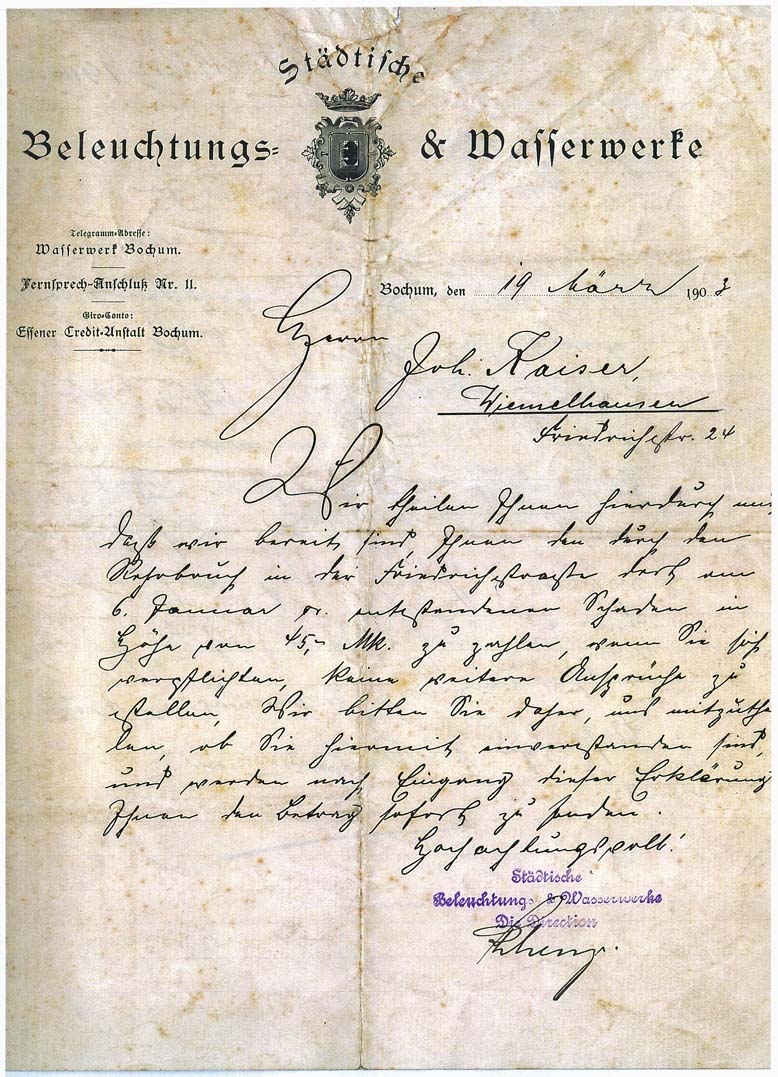 Städtische
Beleuchtungs- & Wasserwerke
Telegramm-Adresse:
Wasserwerk Bochum.
Fernsprech-Anschluß Nr. 11.
Giro-Conto:
Essener Credit-Anstalt Bochum.
Bochum, den 19 März 1903
Herrn
Joh. Kaiser,
Wiemelhausen
Friedrichstr. 24
Wir theilen Ihnen hierdurch mit,
daß wir bereit sind, Ihnen den durch den
Rohrbruch in der Friedrichstraße dort am
6. Januar cr. entstandenen Schaden in
Höhe von 45,- Mk. zu zahlen, wenn Sie sich
verpflichten, keine weitere Ansprüche zu
stellen, Wir bitten Sie daher, uns mitzuthei
len, ob Sie hiermit einverstanden sind,
und werden nach Eingang dieser Erklärung
Ihnen den Betrag sofort zu senden.
Hochachtungsvoll!
Städtische
Beleuchtungs- & Wasserwerke
Die Direction